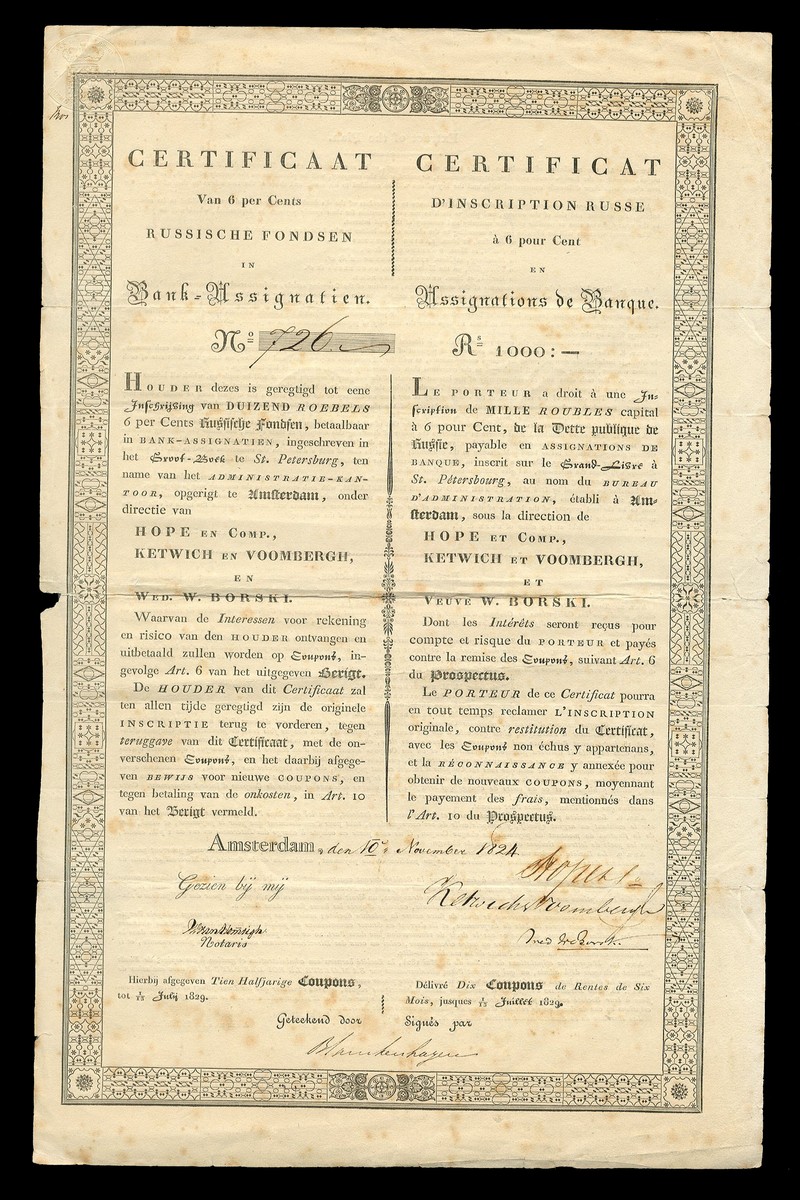 CERTIFICAAT
Van 6 per Cents
RUSSISCHE FONDSEN
IN
Bank-Assignatien.
No 726
HOUDER dezes is geregtigd tot eene
Inschrijving van DUIZEND ROEBELS
6 per Cents Russische Fondsen, betaalbaar
in BANK-ASSIGNATIEN, ingeschreven in
het Groot-Boek te St. Petersburg, ten
name van het ADMINISTRATIE-KAN-
TOOR, opgerigt te Amsterdam, onder
directie van
HOPE EN COMP.,
KETWICH EN VOOMBERGH,
EN
WED. W. BORSKI.
Waarvan de Interessen voor rekening
en risico van den HOUDER ontvangen en
uitbetaald zullen worden op Coupons, in-
gevolge Art. 6 van het uitgegeven Berigt.
De HOUDER van dit Certificaat zal
ten allen tijde geregtigd zijn de originele
INSCRIPTIE terug te vorderen, tegen
teruggave van dit Certificaat, met de on-
verschenen Coupons, en het daarbij afgege-
ven BEWIJS voor nieuwe COUPONS, en
tegen betaling van de onkosten, in Art. 10
van het Berigt vermeld.
CERTIFICAT
D'INSCRIPTION RUSSE
à 6 pour Cent
EN
Assignations de Banque.
Rs 1000:—
LE PORTEUR a droit à une In-
scription de MILLE ROUBLES capital
à 6 pour Cent, de la Dette publique de
Russie, payable en ASSIGNATIONS DE
BANQUE, inscrit sur le Grand-Livre à
St. Pétersbourg, au nom du BUREAU
D'ADMINISTRATION, établi à Am-
sterdam, sous la direction de
HOPE ET COMP.,
KETWICH ET VOOMBERGH,
ET
VEUVE W. BORSKI.
Dont les Intérêts seront reçus pour
compte et risque du PORTEUR et payés
contre la remise des Coupons, suivant Art. 6
du Prospectus.
Le PORTEUR de ce Certificat pourra
en tout temps reclamer L'INSCRIPTION
originale, contre restitution du Certificat,
avec les Coupons non échus y appartenans,
et la RÉCONNAISSANCE y annexée pour
obtenir de nouveaux COUPONS, moyennant
le payement des frais, mentionnés dans
l'Art. 10 du Prospectus.
Amsterdam, den 10 November 1824.
Gezien bij mij
Notaris
Hope & Co
Ketwich & Voombergh
Wed W Borski
Hierbij afgegeven Tien Halfjarige Coupons,
tot 1/13 Julij 1829.
Délivré Dix Coupons de Rentes de Six
Mois, jusques 1/13 Juillet 1829.
Geteekend door Signés par